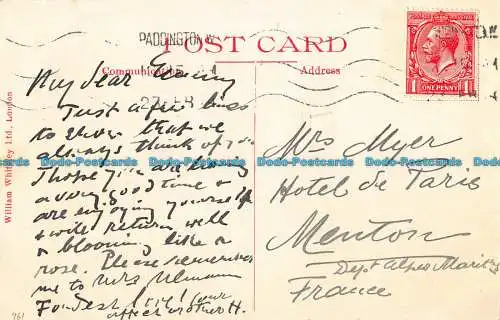 PADDINGTON W
POST CARD
Communication
Address
ONE PENNY
William Whiteley Ltd., London
My dear
Just a few lines
to show that we
always think of you
I hope you are having
a very good time &
are enjoying yourself
& will return well
& blooming like a
rose. Please remember
me to Mrs Ullmann
Fondest love your
affec mother H.
961
Mrs Myer
Hotel de Paris
Menton
Dept Alpes Maritimes
France